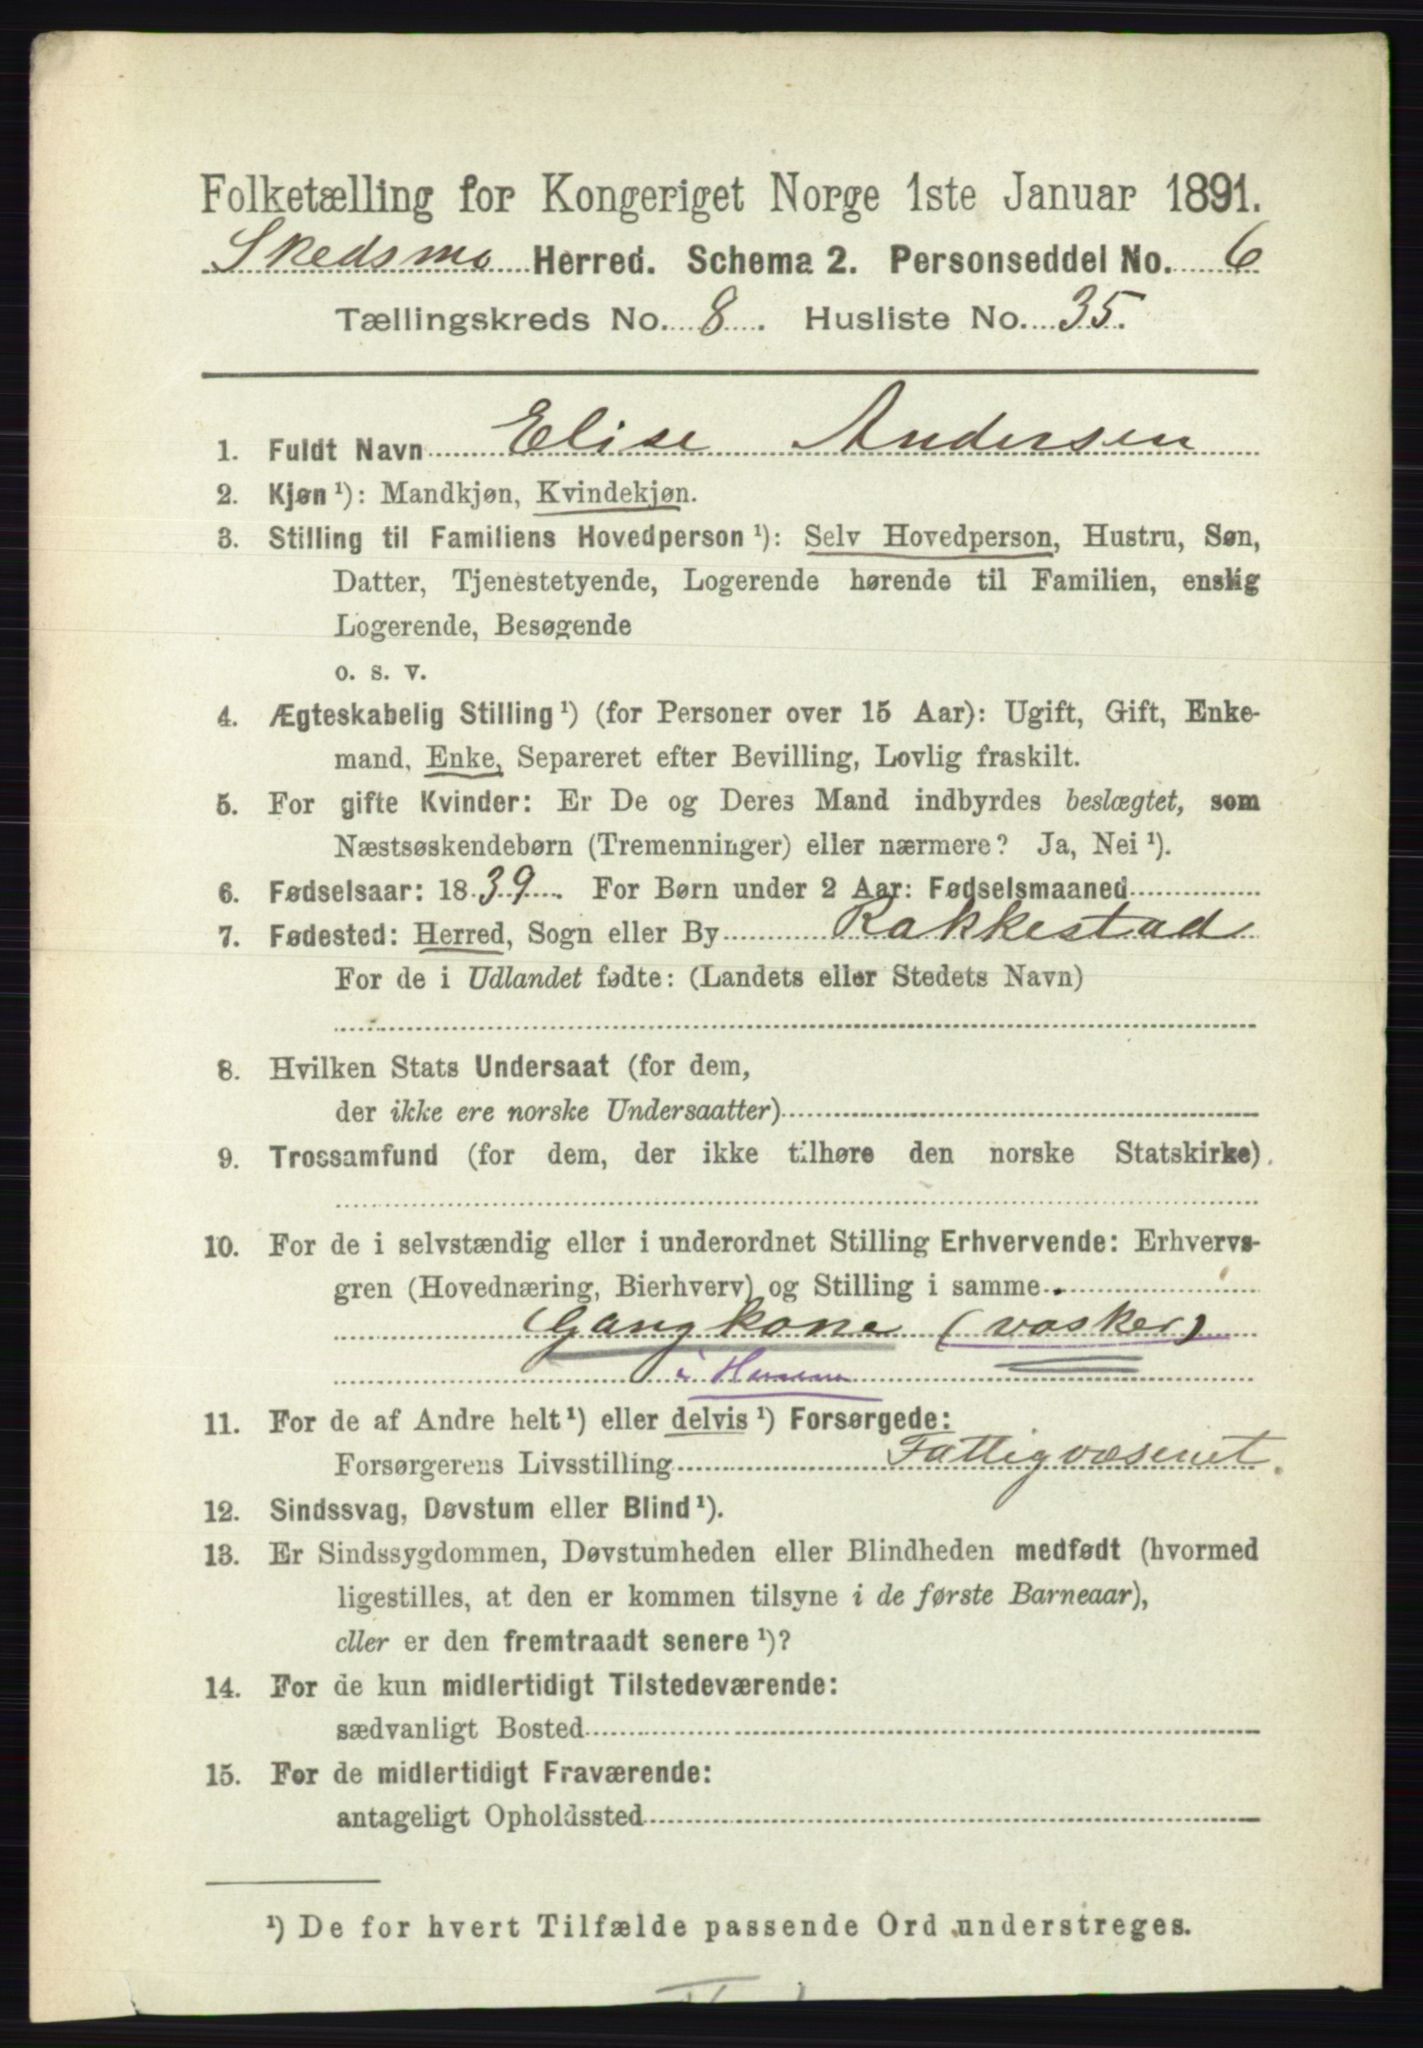 Folketælling for Kongeriget Norge 1ste Januar 1891.
Skedsmo Herred. Schema 2. Personseddel No. 6
Tællingskreds No. 8. Husliste No. 35.
1. Fuldt Navn Elise Andersen
2. Kjøn ¹): Mandkjøn, Kvindekjøn.
3. Stilling til Familiens Hovedperson ¹): Selv Hovedperson, Hustru, Søn,
Datter, Tjenestetyende, Logerende hørende til Familien, enslig
Logerende, Besøgende
o. s. v.
4. Ægteskabelig Stilling ¹) (for Personer over 15 Aar): Ugift, Gift, Enke-
mand, Enke, Separeret efter Bevilling, Lovlig fraskilt.
5. For gifte Kvinder: Er De og Deres Mand indbyrdes beslægtet, som
Næstsøskendebørn (Tremenninger) eller nærmere? Ja, Nei ¹).
6. Fødselsaar: 1839. For Børn under 2 Aar: Fødselsmaaned
7. Fødested: Herred, Sogn eller By Rakkestad
For de i Udlandet fødte: (Landets eller Stedets Navn)
8. Hvilken Stats Undersaat (for dem,
der ikke ere norske Undersaatter)
9. Trossamfund (for dem, der ikke tilhøre den norske Statskirke).
10. For de i selvstændig eller i underordnet Stilling Erhvervende: Erhvervs-
gren (Hovednæring, Bierhverv) og Stilling i samme.
Gangkone (vasker)
i Husene
11. For de af Andre helt ¹) eller delvis ¹) Forsørgede:
Forsørgerens Livsstilling Fattigvæsenet.
12. Sindssvag, Døvstum eller Blind ¹).
13. Er Sindssygdommen, Døvstumheden eller Blindheden medfødt (hvormed
ligestilles, at den er kommen tilsyne i de første Barneaar),
eller er den fremtraadt senere ¹)?
14. For de kun midlertidigt Tilstedeværende:
sædvanligt Bosted
15. For de midlertidigt Fraværende:
antageligt Opholdssted
¹) De for hvert Tilfælde passende Ord understreges.